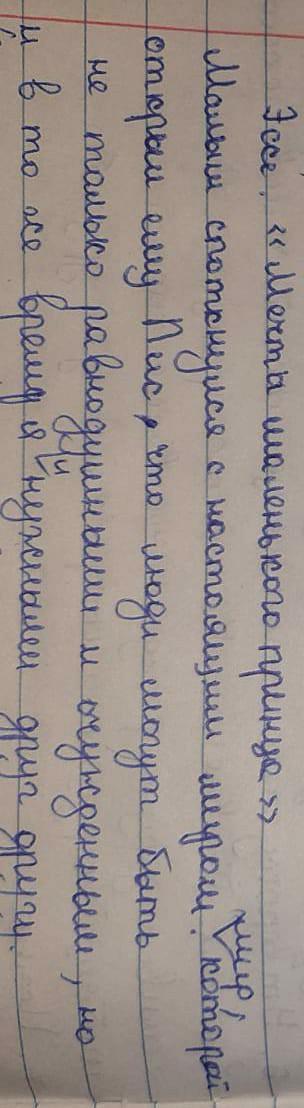 Эссе. «Мечты маленького принца»
Малыш столкнулся с настоящим миром. Мир, который
открыл ему Лис, что люди могут быть
не только равнодушными и отчужденными, но
и в то же время и нужными друг другу.